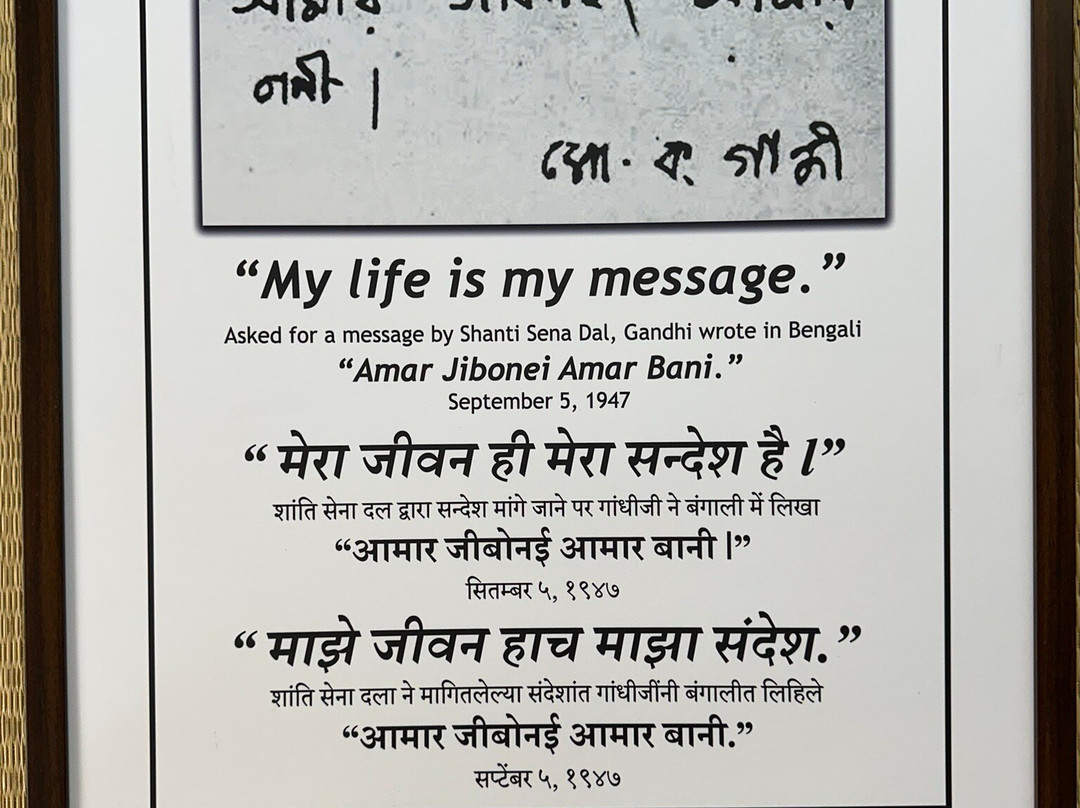 বানী ।
মো. ক. গান্ধী
“My life is my message.”
Asked for a message by Shanti Sena Dal, Gandhi wrote in Bengali
“Amar Jibonei Amar Bani.”
September 5, 1947
“ मेरा जीवन ही मेरा सन्देश है ।”
शांति सेना दल द्वारा सन्देश मांगे जाने पर गांधीजी ने बंगाली में लिखा
“आमार जीबोनई आमार बानी |”
सितम्बर ५, १९४७
“ माझे जीवन हाच माझा संदेश. ”
शांति सेना दला ने मागितलेल्या संदेशांत गांधीजींनी बंगालीत लिहिले
“आमार जीबोनई आमार बानी.”
सप्टेंबर ५, १९४७